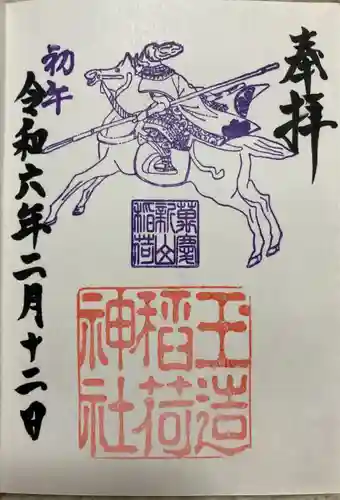 奉拝
萬慶
新山
稲荷
玉造
稲荷
神社
初午
令和六年二月十二日